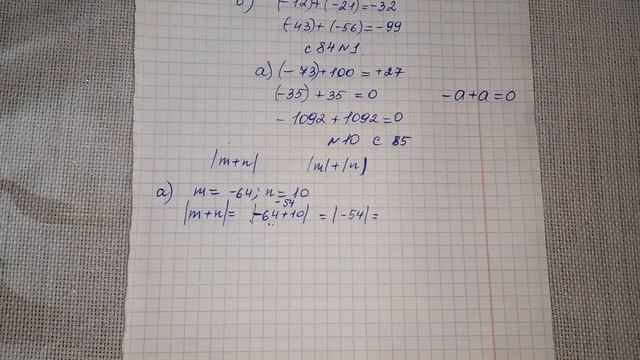 б) (-12)+(-21)=-32
(-43)+(-56)=-99
с 84 N1.
а) (-73)+100=+27
(-35)+35=0 -a+a=0
-1092+1092=0
N10 с 85
|m+n| |m|+|n|
а) m=-64; n=10
-54
|m+n|= |-64+10| = |-54| =